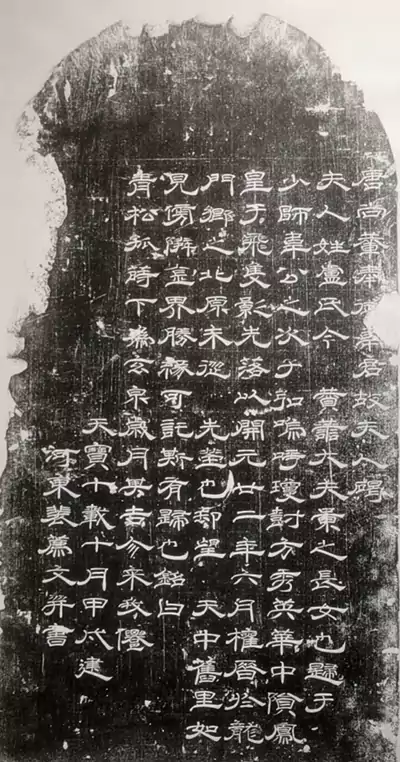 唐尚輦奉御韋君故夫人碣
夫人姓盧氏今 黄 大夫景之長女也歸于
少師韋公之次子知 呼瓊 方秀英華中隕鳳
皇于飛隻影先落以開元廿二年六月權厝於龍
門鄉之北原未從 先塋也却望 天中舊里如
見傍隣靈界勝緣可託斯有歸也銘曰
青松孤蒔下為玄泉歲月其去 來 僊
天寶十載十月甲戌建
河東裴薦文并書